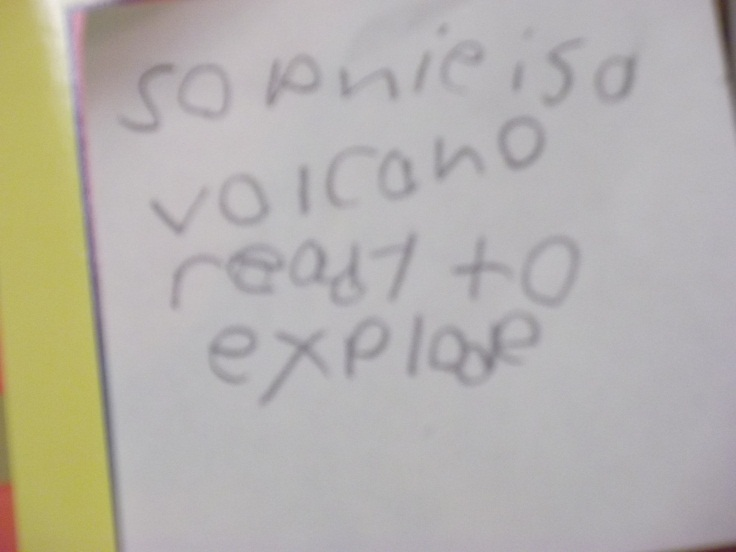 sophie is a
volcano
ready to
explode